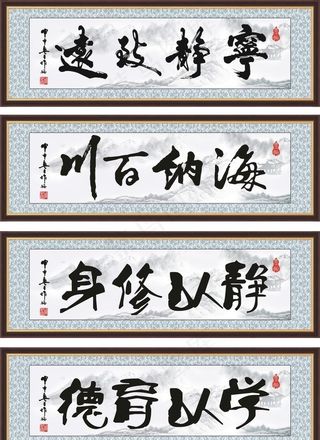 寧靜致遠
海纳百川
静以修身
学以育德